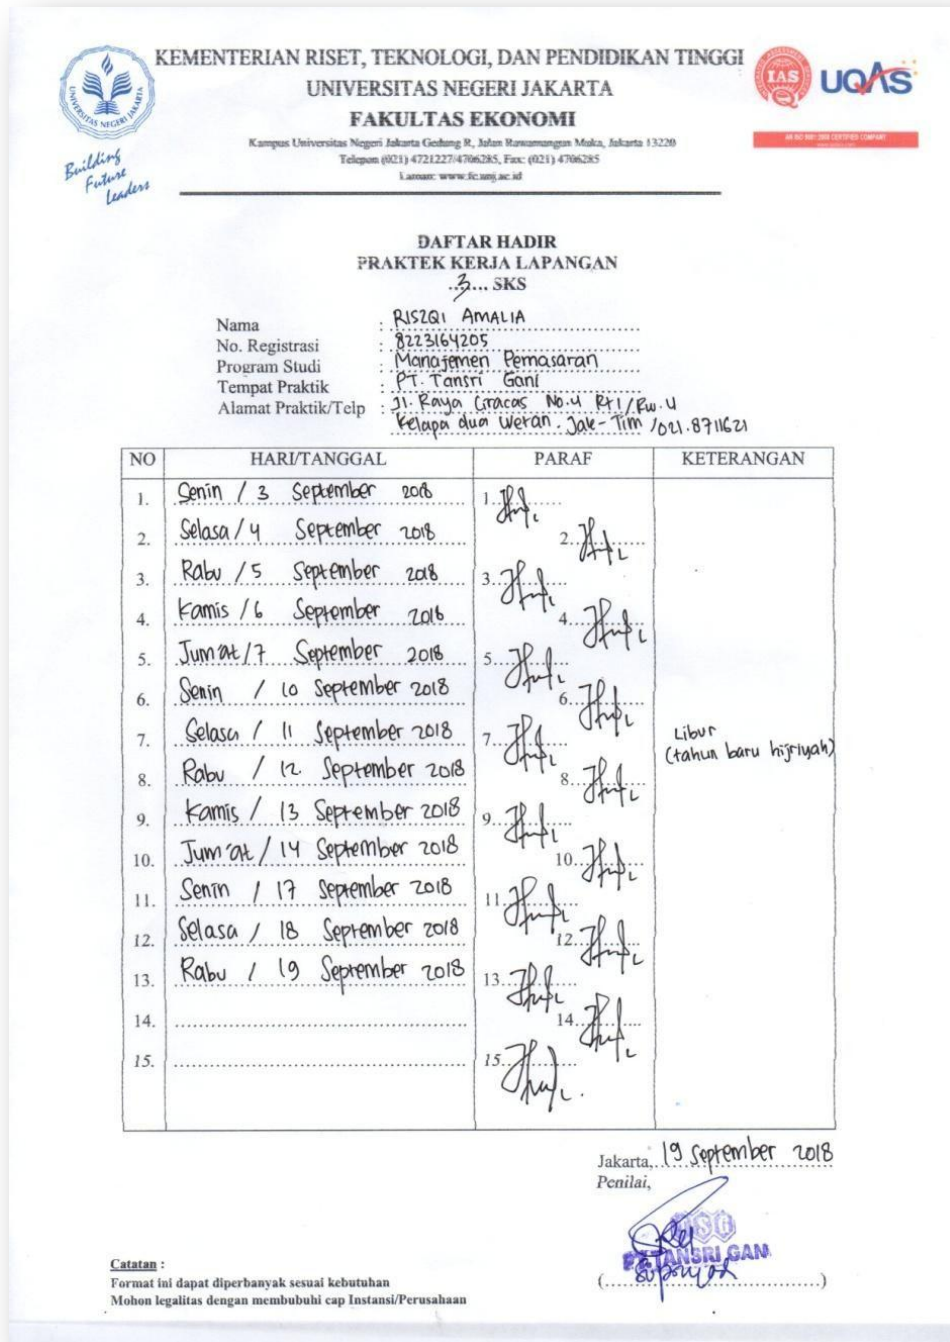 KEMENTERIAN RISET, TEKNOLOGI, DAN PENDIDIKAN TINGGI
UNIVERSITAS NEGERI JAKARTA
FAKULTAS EKONOMI
Kampus Universitas Negeri Jakarta Gedung R, Jalan Rawamangun Muka, Jakarta 13220
Telepon (021) 4721227/4706285, Fax: (021) 4706285
Laman: www.fe.unj.ac.id
UNIVERSITAS NEGERI JAKARTA
Building
Future
Leaders
IAS
UQAS
AN ISO 9001:2008 CERTIFIED COMPANY
DAFTAR HADIR
PRAKTEK KERJA LAPANGAN
..3... SKS
Nama : RISZQI AMALIA
No. Registrasi : 8223164205
Program Studi : Manajemen Pemasaran
Tempat Praktik : PT. Tansri Gani
Alamat Praktik/Telp : Jl. Raya Ciracas No.4 Rt1/Rw.4
Kelapa dua Wetan. Jak-Tim /021.8711621
NO HARI/TANGGAL PARAF KETERANGAN
1. Senin / 3 September 2018 1.
2. Selasa / 4 September 2018 2.
3. Rabu / 5 September 2018 3.
4. Kamis / 6 September 2018 4.
5. Jum'at / 7 September 2018 5.
6. Senin / 10 September 2018 6.
7. Selasa / 11 September 2018 7. Libur
(tahun baru hijriyah)
8. Rabu / 12 September 2018 8.
9. Kamis / 13 September 2018 9.
10. Jum'at / 14 September 2018 10.
11. Senin / 17 September 2018 11.
12. Selasa / 18 September 2018 12.
13. Rabu / 19 September 2018 13.
14. 14.
15. 15.
Jakarta, 19 September 2018
Penilai,
TSG
PT TANSRI GANI
Supriyadi
Catatan :
Format ini dapat diperbanyak sesuai kebutuhan
Mohon legalitas dengan membubuhi cap Instansi/Perusahaan